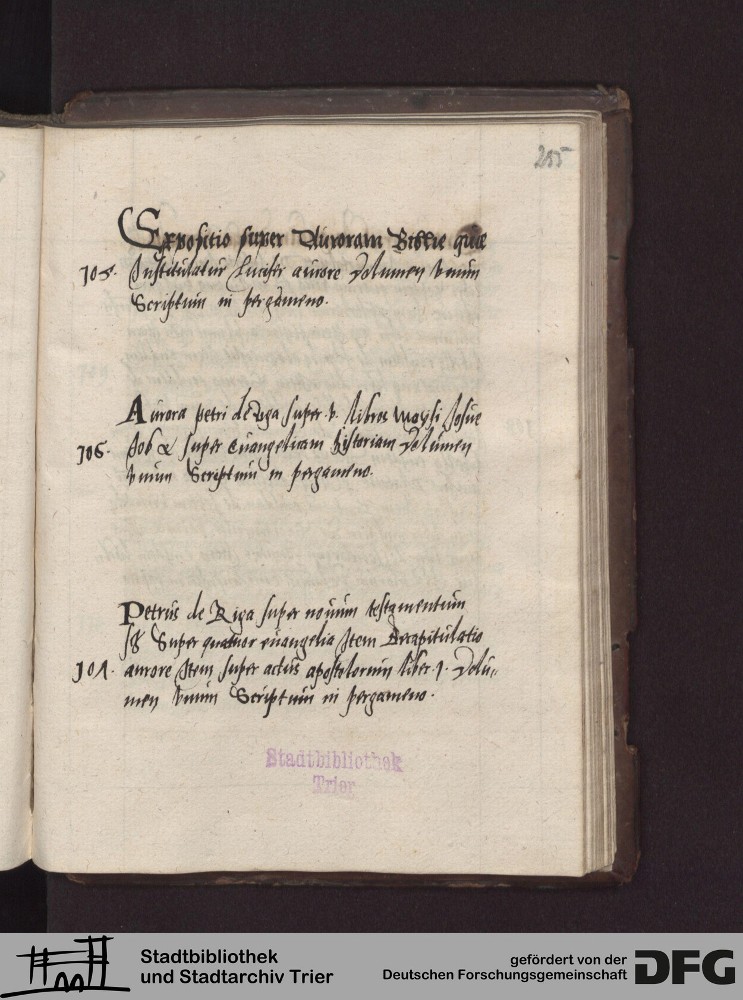 255
Expositio super Auroram Biblie que
105. Instituilatur Lucifer aurore Volumen vnum
Scriptum in pergameno.
Aurora petri de Riga super .v. libros Moysi Josue
106. Job & super euangelicam historiam Volumen
vnum Scriptum in pergameno.
Petrus de Riga super nouum testamentum
Super quatuor euangelia Item Recapitulatio
101. aurore Item super actus apostolorum liber .1. Volu-
men vnum Scriptum in pergameno.
Stadtbibliothek
Trier
Stadtbibliothek
und Stadtarchiv Trier
gefördert von der
Deutschen Forschungsgemeinschaft
DFG